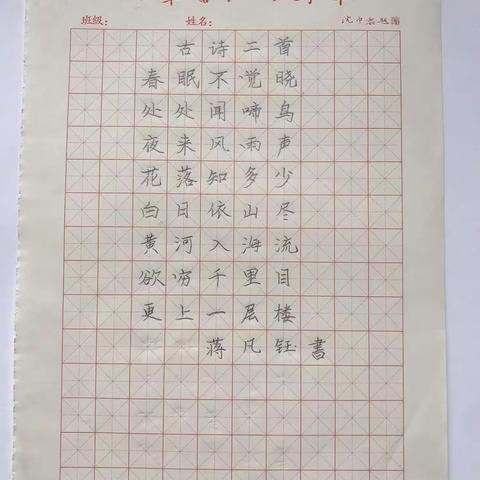 班级： 姓名：
古诗二首
春眠不觉晓
处处闻啼鸟
夜来风雨声
花落知多少
白日依山尽
黄河入海流
欲穷千里目
更上一层楼
蒋凡钰書